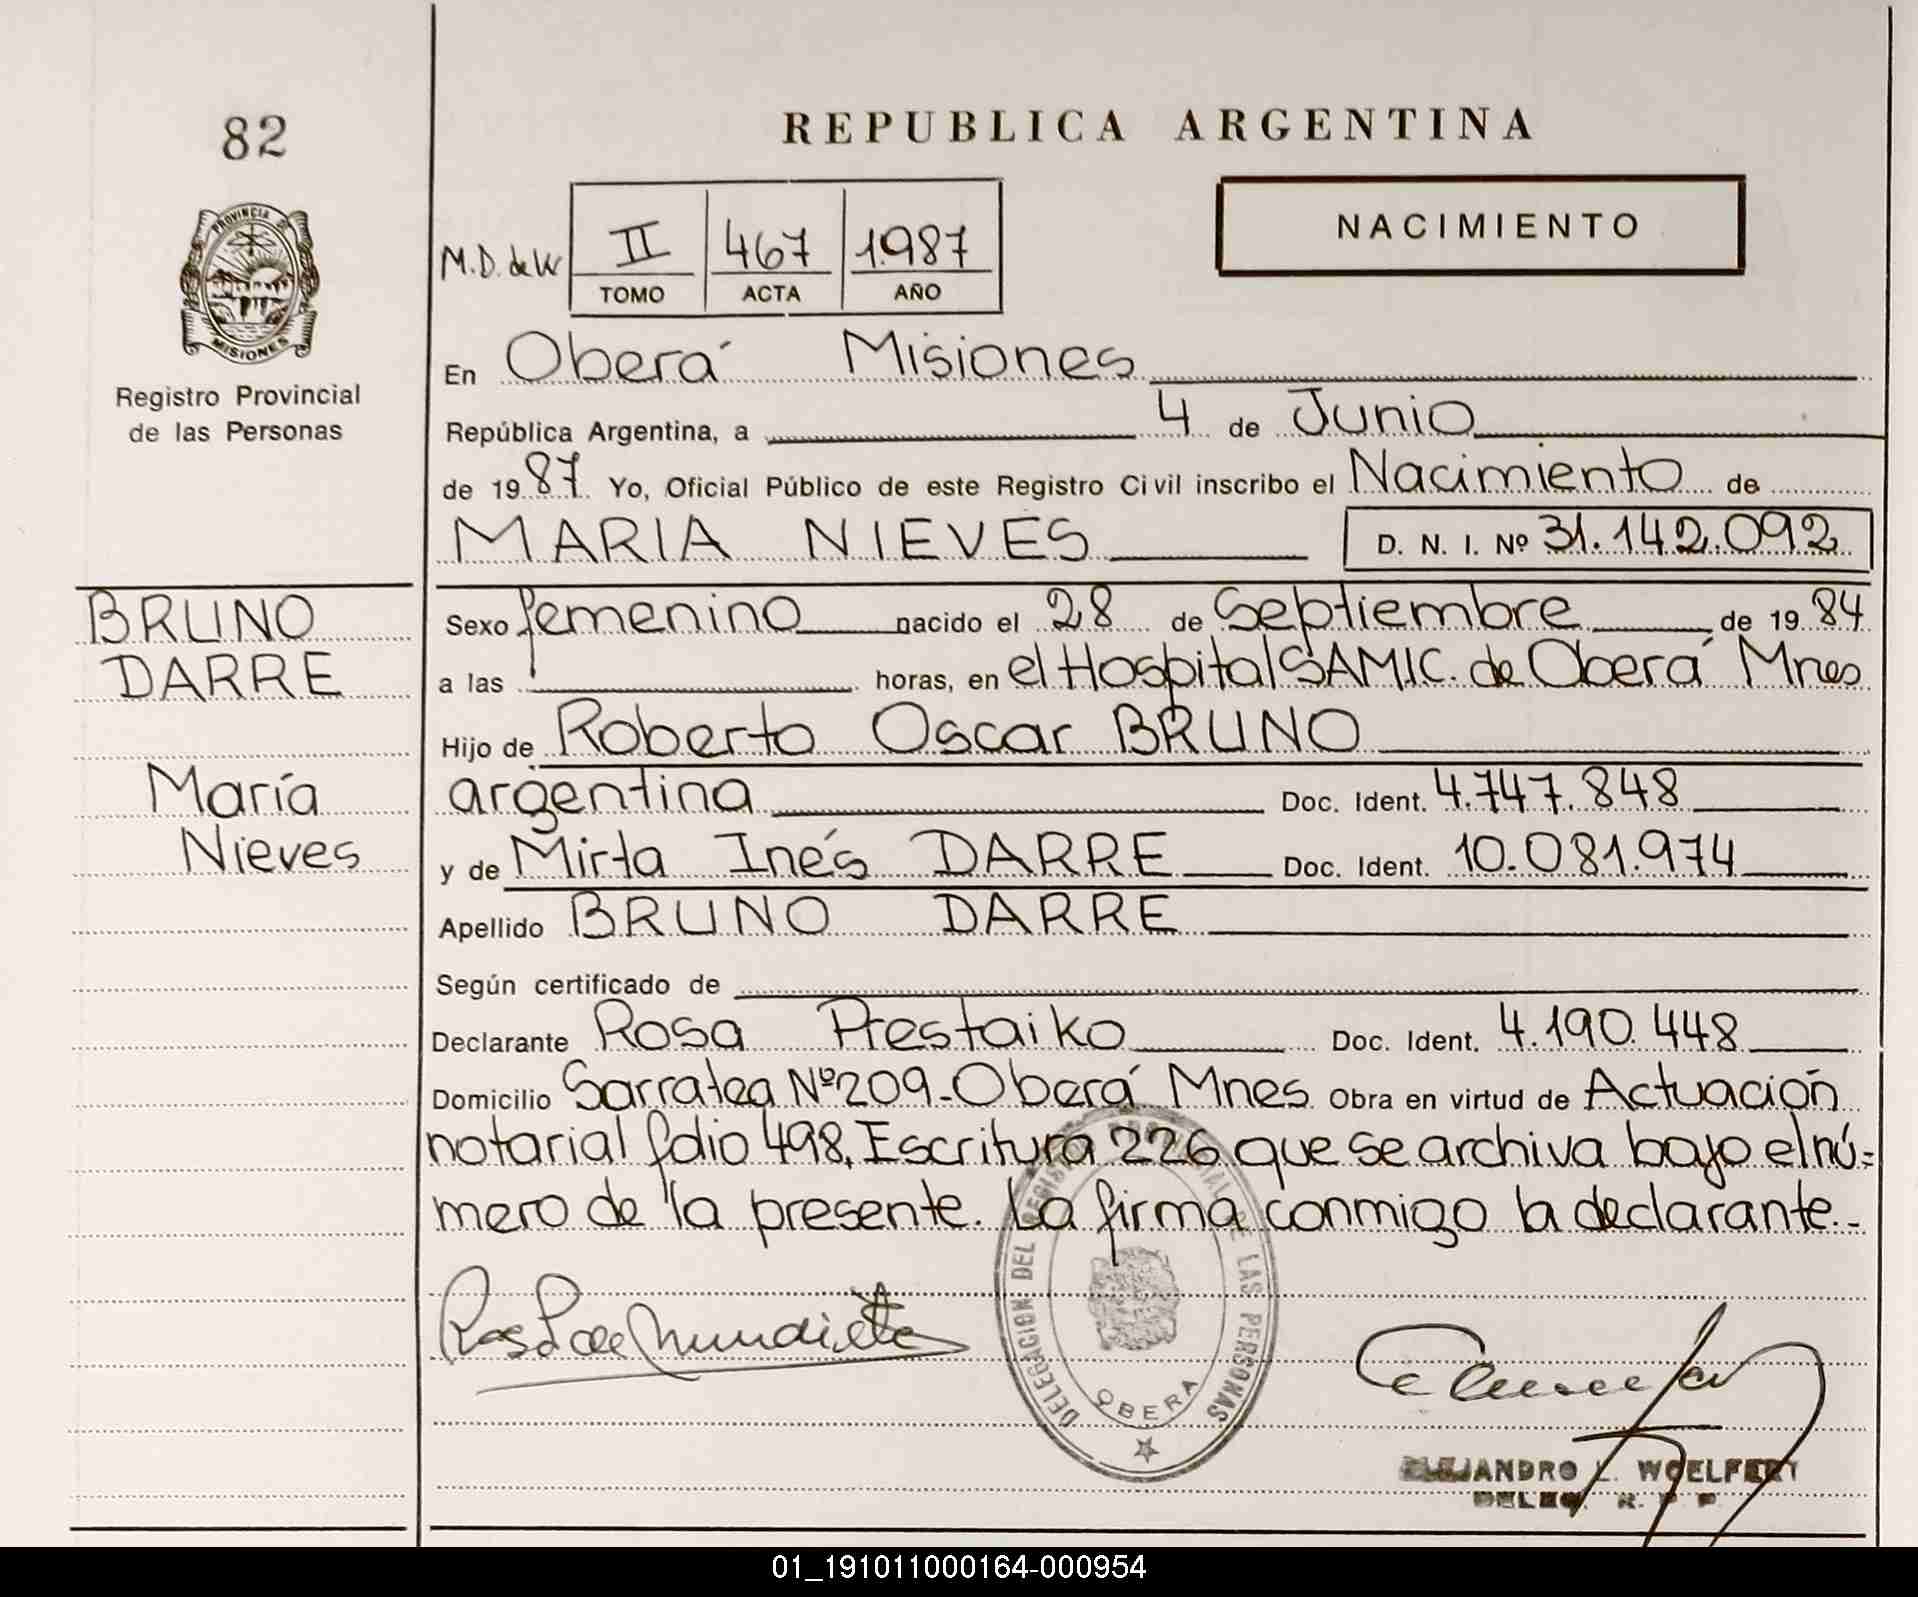 82
REPUBLICA ARGENTINA
NACIMIENTO
PROVINCIA DE
MISIONES
Registro Provincial
de las Personas
M.D. de W
II 467 1.987
TOMO ACTA AÑO
En Oberá Misiones
República Argentina, a 4 de Junio
de 1987 Yo, Oficial Público de este Registro Civil inscribo el Nacimiento de
MARIA NIEVES D. N. I. Nº 31.142.092
BRUNO
DARRE
María
Nieves
Sexo femenino nacido el 28 de Septiembre de 1984
a las horas, en el Hospital SAMIC. de Oberá Mnes
Hijo de Roberto Oscar BRUNO
argentina Doc. Ident. 4.747.848
y de Mirta Inés DARRE Doc. Ident. 10.081.974
Apellido BRUNO DARRE
Según certificado de
Declarante Rosa Prestaiko Doc. Ident. 4.190.448
Domicilio Sarratea Nº209-Oberá Mnes Obra en virtud de Actuación
notarial folio 498, Escritura 226 que se archiva bajo el nú=
mero de la presente. La firma conmigo la declarante.-
DELEGACION DEL REGISTRO PROVINCIAL DE LAS PERSONAS
OBERA
ALEJANDRO L. WOELFERT
DELEG. R. P. P.
01_191011000164-000954